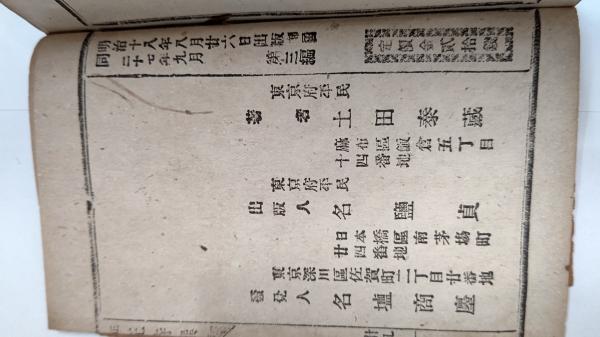 明治十八年八月廿六日出版
同二十七年九月 第三編
定價金貳拾錢
東京府平民
著者 土田泰蔵
麻布區飯倉五丁目
十四番地
東京府平民
出版人 名鹽貞
日本橋區南茅場町
廿四番地
東京深川區佐賀町二丁目廿番地
發兌人 名 商